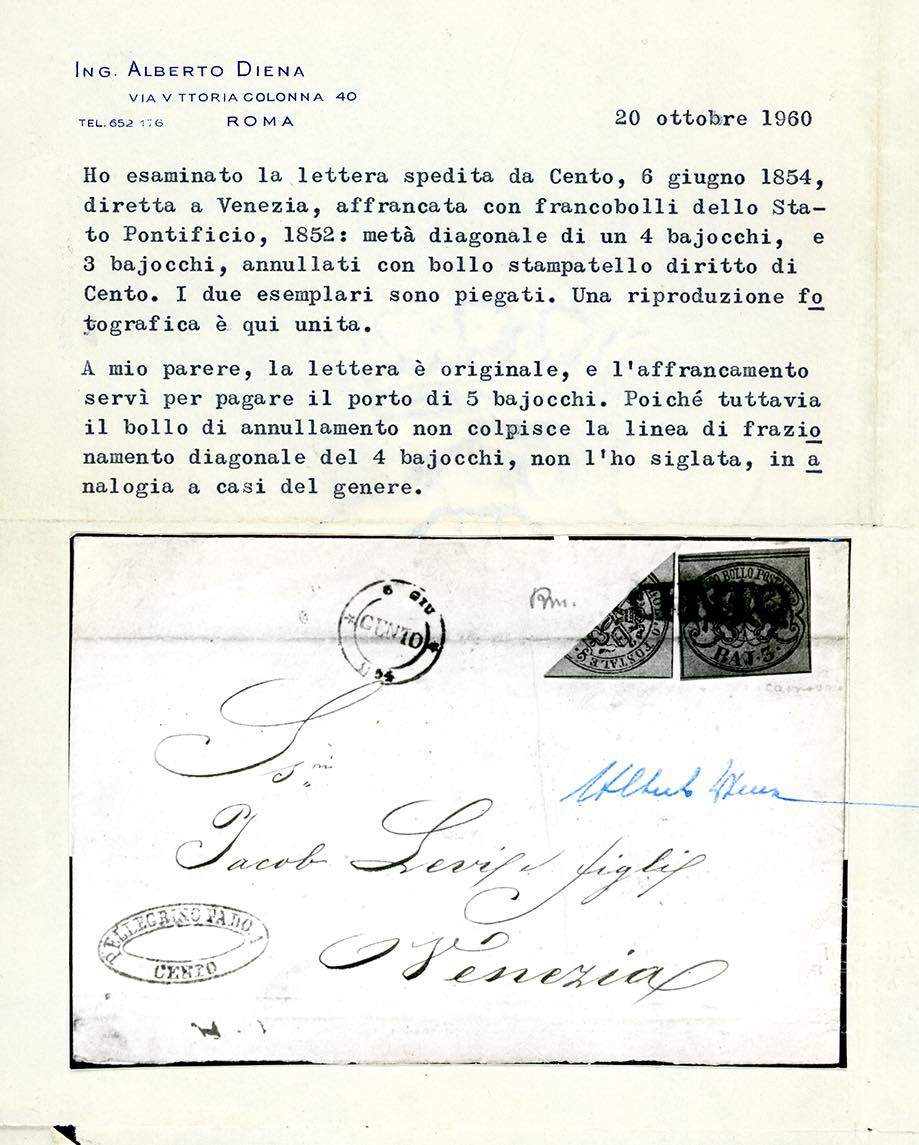 ING. ALBERTO DIENA
VIA V TTORIA COLONNA 40
TEL. 652 176 ROMA
20 ottobre 1960
Ho esaminato la lettera spedita da Cento, 6 giugno 1854,
diretta a Venezia, affrancata con francobolli dello Sta-
to Pontificio, 1852: metà diagonale di un 4 bajocchi, e
3 bajocchi, annullati con bollo stampatello diritto di
Cento. I due esemplari sono piegati. Una riproduzione fo
tografica è qui unita.
A mio parere, la lettera è originale, e l'affrancamento
servì per pagare il porto di 5 bajocchi. Poiché tuttavia
il bollo di annullamento non colpisce la linea di frazio
namento diagonale del 4 bajocchi, non l'ho siglata, in a
nalogia a casi del genere.
6 GIU
CENTO
54
BOLLO POSTALE
BOLLO POSTALE
CENTO
BAJ. 3.
Alberto Diena
Jacob Levi e figli
Venezia
PELLEGRINO PADOA
CENTO